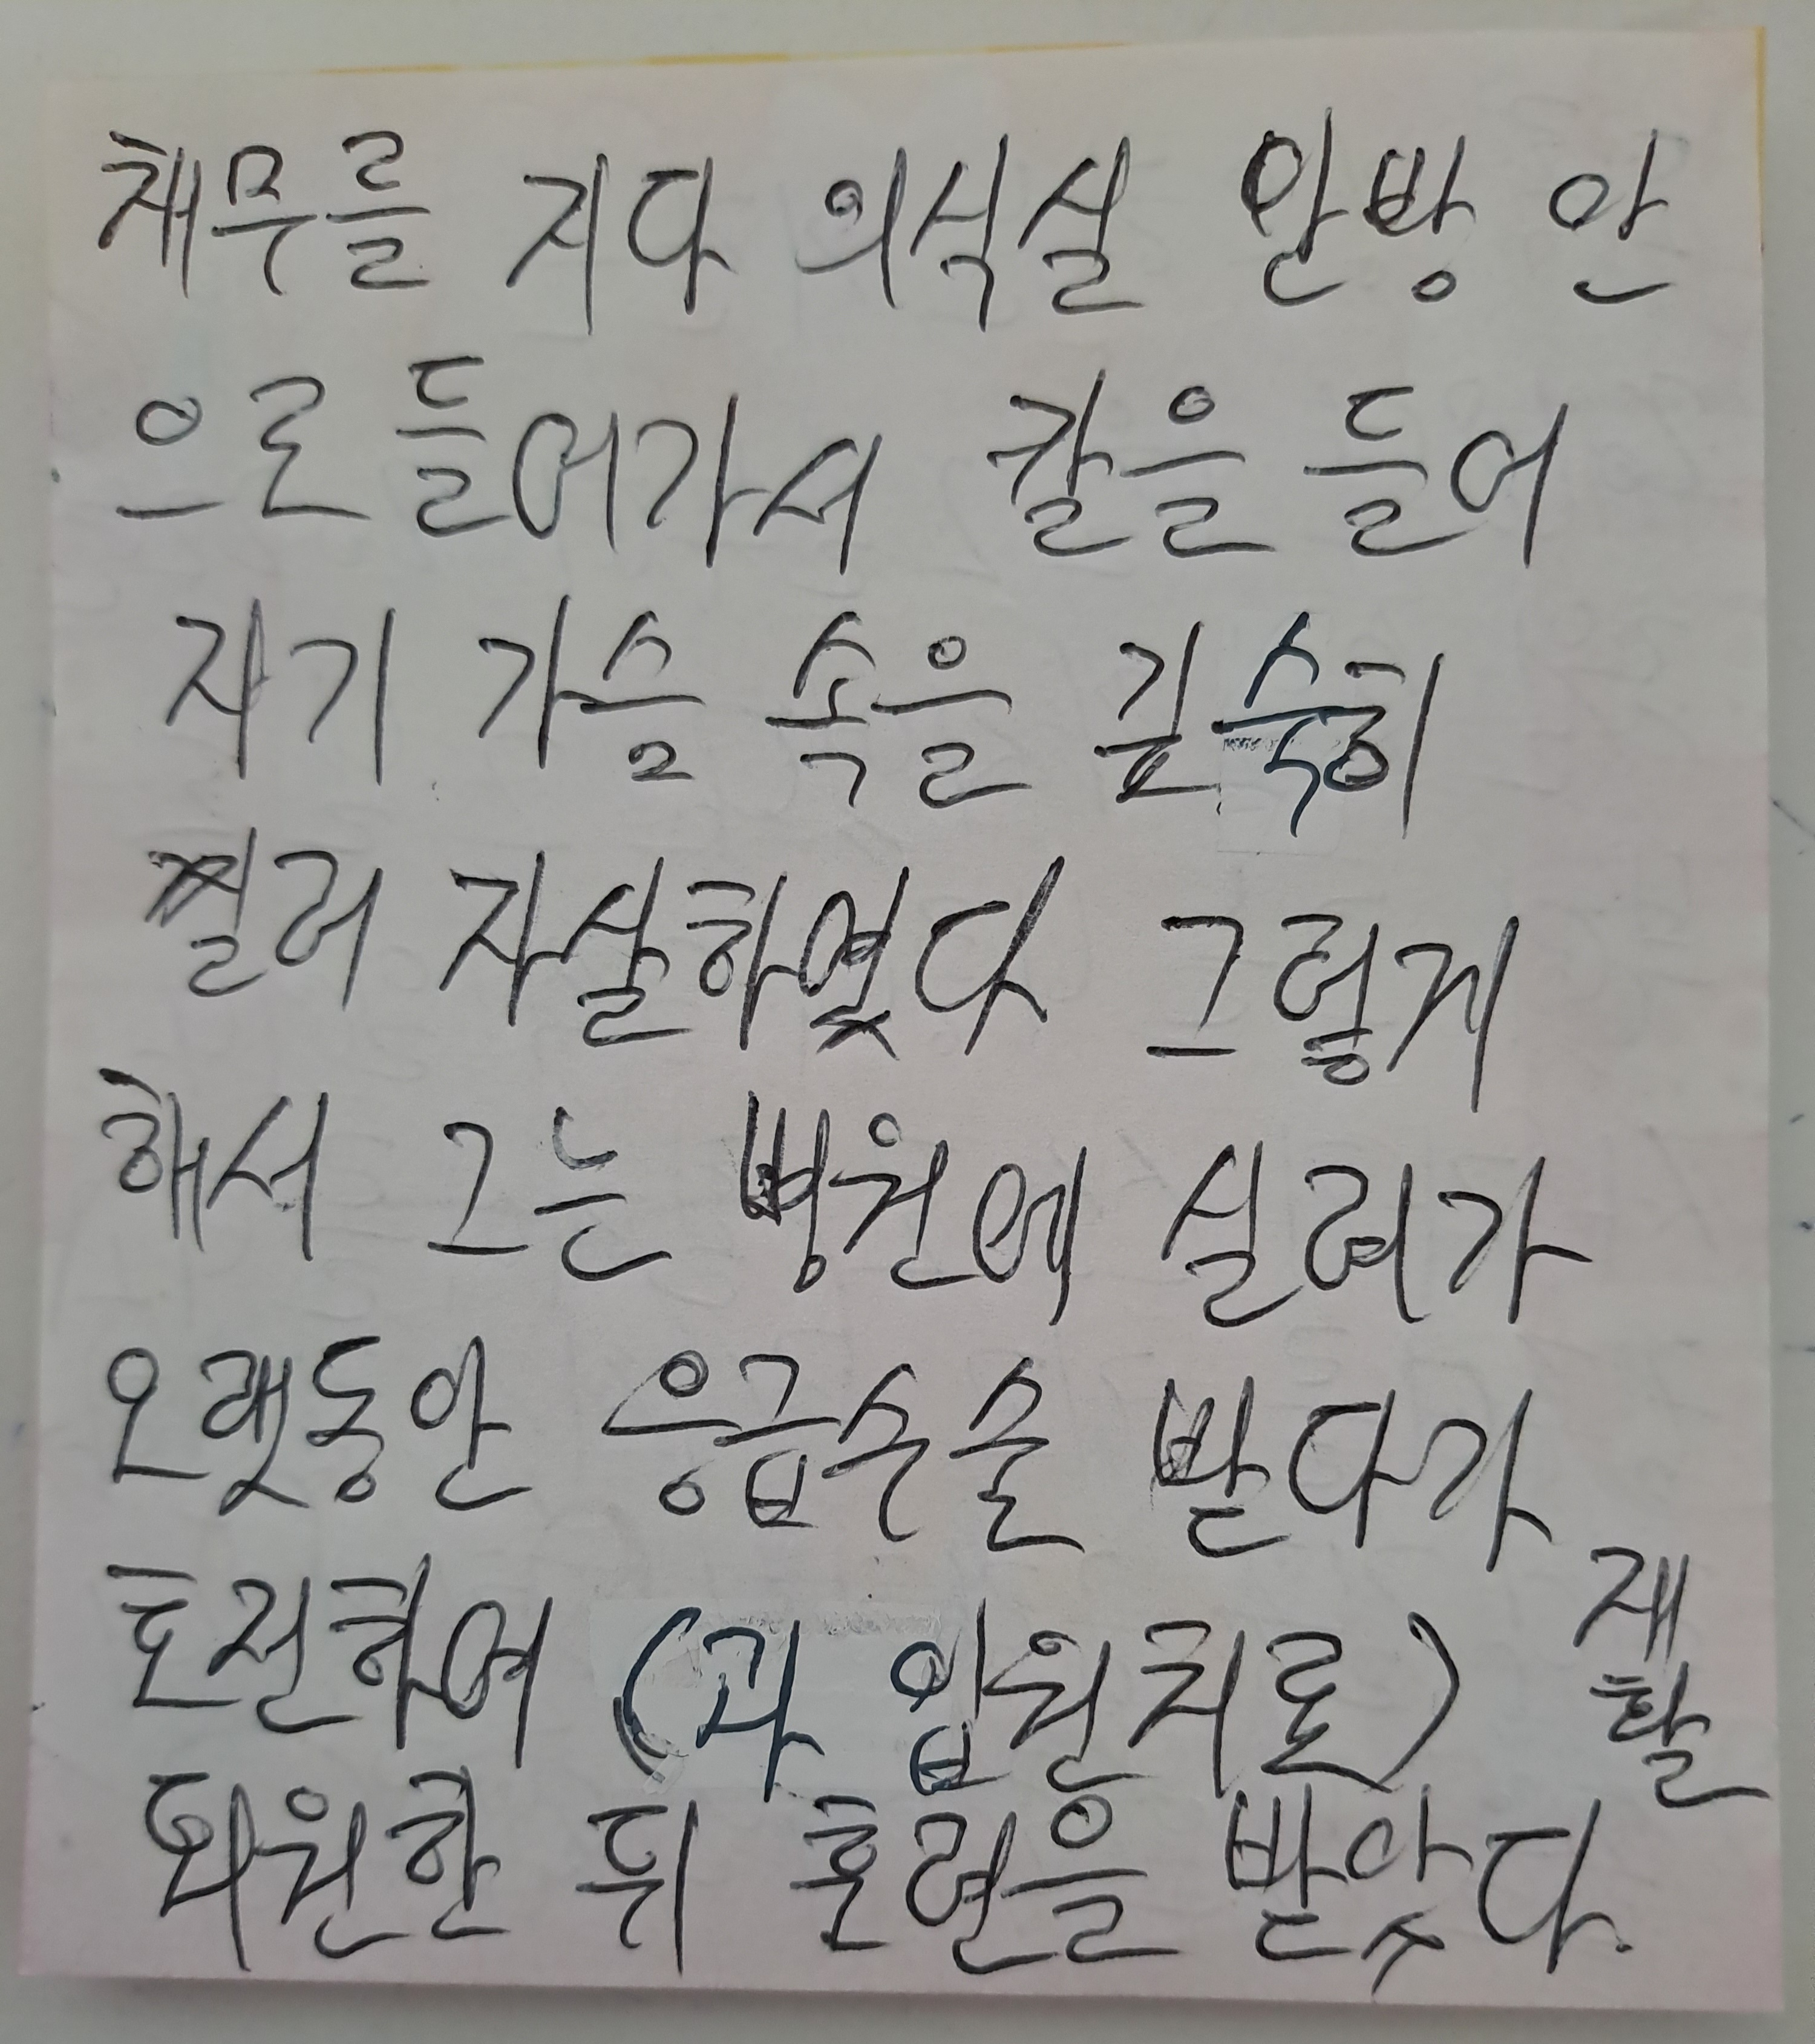 채무를 지다 의식실 안방 안
으로 들어가서 칼을 들어
자기 가슴 속을 깊숙히
찔러 자살하였다 그렇게
해서 그는 병원에 실려가
오랫동안 응급수술 받다가
호전하여 (과 입원치료) 재활
퇴원한 뒤 훈련을 받았다.